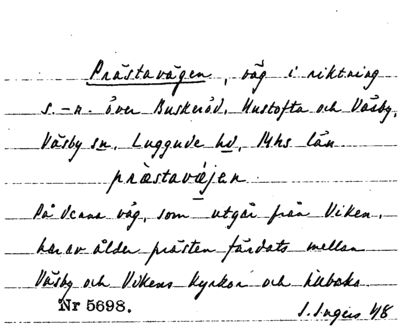 Prästavägen, väg i riktning
s.-n. över Buskeröd, Hustofta och Väsby,
Väsby sn, Luggude hd, Mhs län
præstavæjen
På denna väg, som utgår från Viken,
har av ålder prästen färdats mellan
Väsby och Vikens kyrkor och tillbaka
Nr 5698. I. Ingers